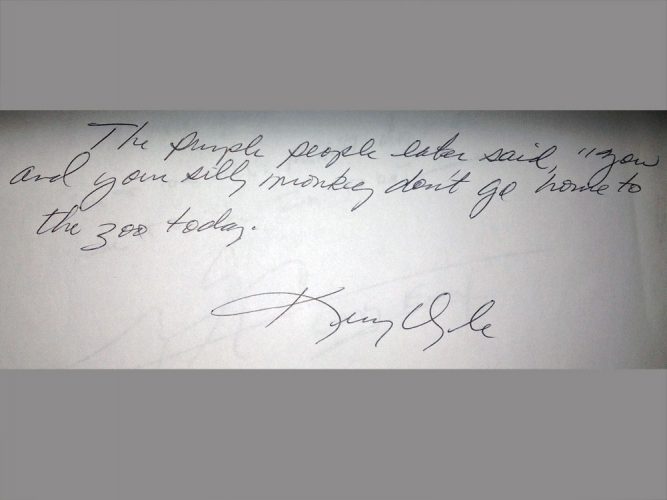 The purple people eater said, "you
and your silly monkey don't go home to
the zoo today.